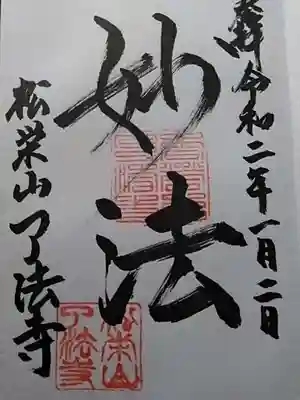 奉拝 令和二年一月二日
妙法
松栄山了法寺
松栄山
了法寺